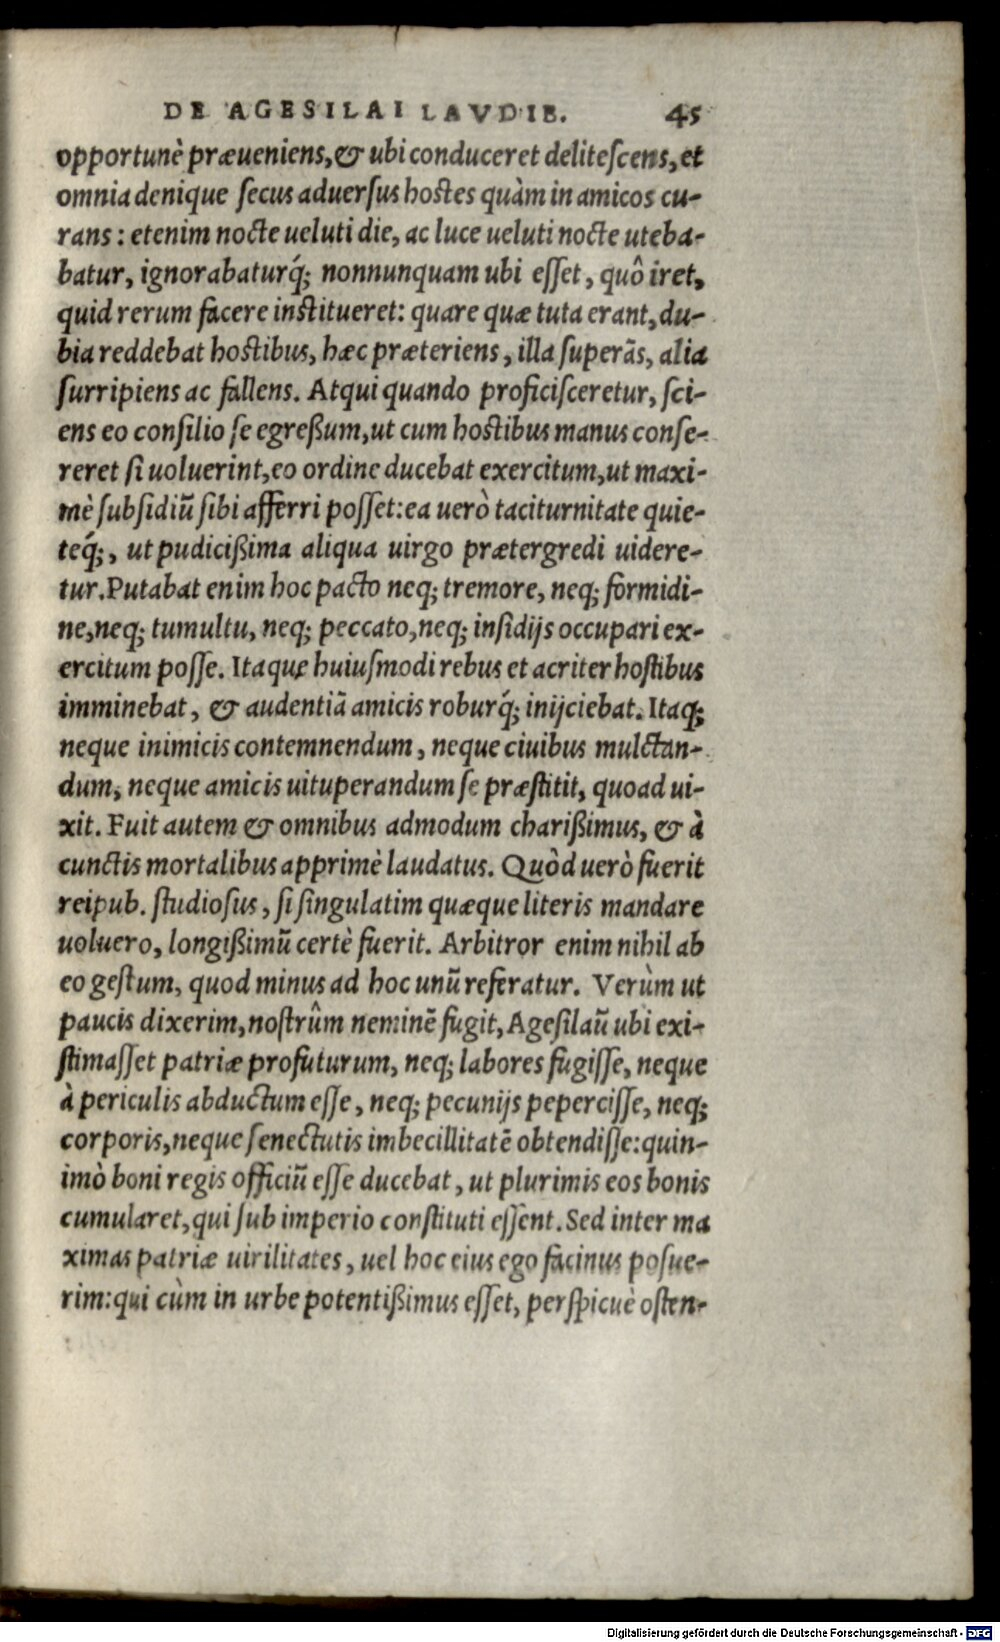 DE AGESILAI LAVDIB. 45
opportunè præueniens, & ubi conduceret delitescens, et
omnia denique secus aduersus hostes quàm in amicos cu-
rans : etenim nocte ueluti die, ac luce ueluti nocte uteba-
batur, ignorabaturq́; nonnunquam ubi esset, quô iret,
quid rerum facere institueret: quare quæ tuta erant, du-
bia reddebat hostibus, hæc præteriens, illa superãs, alia
surripiens ac fallens. Atqui quando proficisceretur, sci-
ens eo consilio se egreßum, ut cum hostibus manus conse-
reret si uoluerint, eo ordine ducebat exercitum, ut maxi-
mè subsidiũ sibi afferri posset: ea uerò taciturnitate quie-
teq́;, ut pudicißima aliqua uirgo prætergredi uidere-
tur. Putabat enim hoc pacto neq; tremore, neq; formidi-
ne, neq; tumultu, neq; peccato, neq; insidijs occupari ex-
ercitum posse. Itaque huiusmodi rebus et acriter hostibus
imminebat, & audentiã amicis roburq́; inijciebat. Itaq;
neque inimicis contemnendum, neque ciuibus mulctan-
dum, neque amicis uituperandum se præstitit, quoad ui-
xit. Fuit autem & omnibus admodum charißimus, & à
cunctis mortalibus apprimè laudatus. Quòd uerò fuerit
reipub. studiosus, si singulatim quæque literis mandare
uoluero, longißimũ certè fuerit. Arbitror enim nihil ab
eo gestum, quod minus ad hoc unũ referatur. Verùm ut
paucis dixerim, nostrûm neminẽ fugit, Agesilaũ ubi exi-
stimasset patriæ profuturum, neq; labores fugisse, neque
à periculis abductum esse, neq; pecunijs pepercisse, neq;
corporis, neque senectutis imbecillitatẽ obtendisse: quin-
imò boni regis officiũ esse ducebat, ut plurimis eos bonis
cumularet, qui sub imperio constituti essent. Sed inter ma
ximas patriæ uirilitates, uel hoc eius ego facinus posue-
rim: qui cùm in urbe potentißimus esset, perspicuè osten-
Digitalisierung gefördert durch die Deutsche Forschungsgemeinschaft - DFG